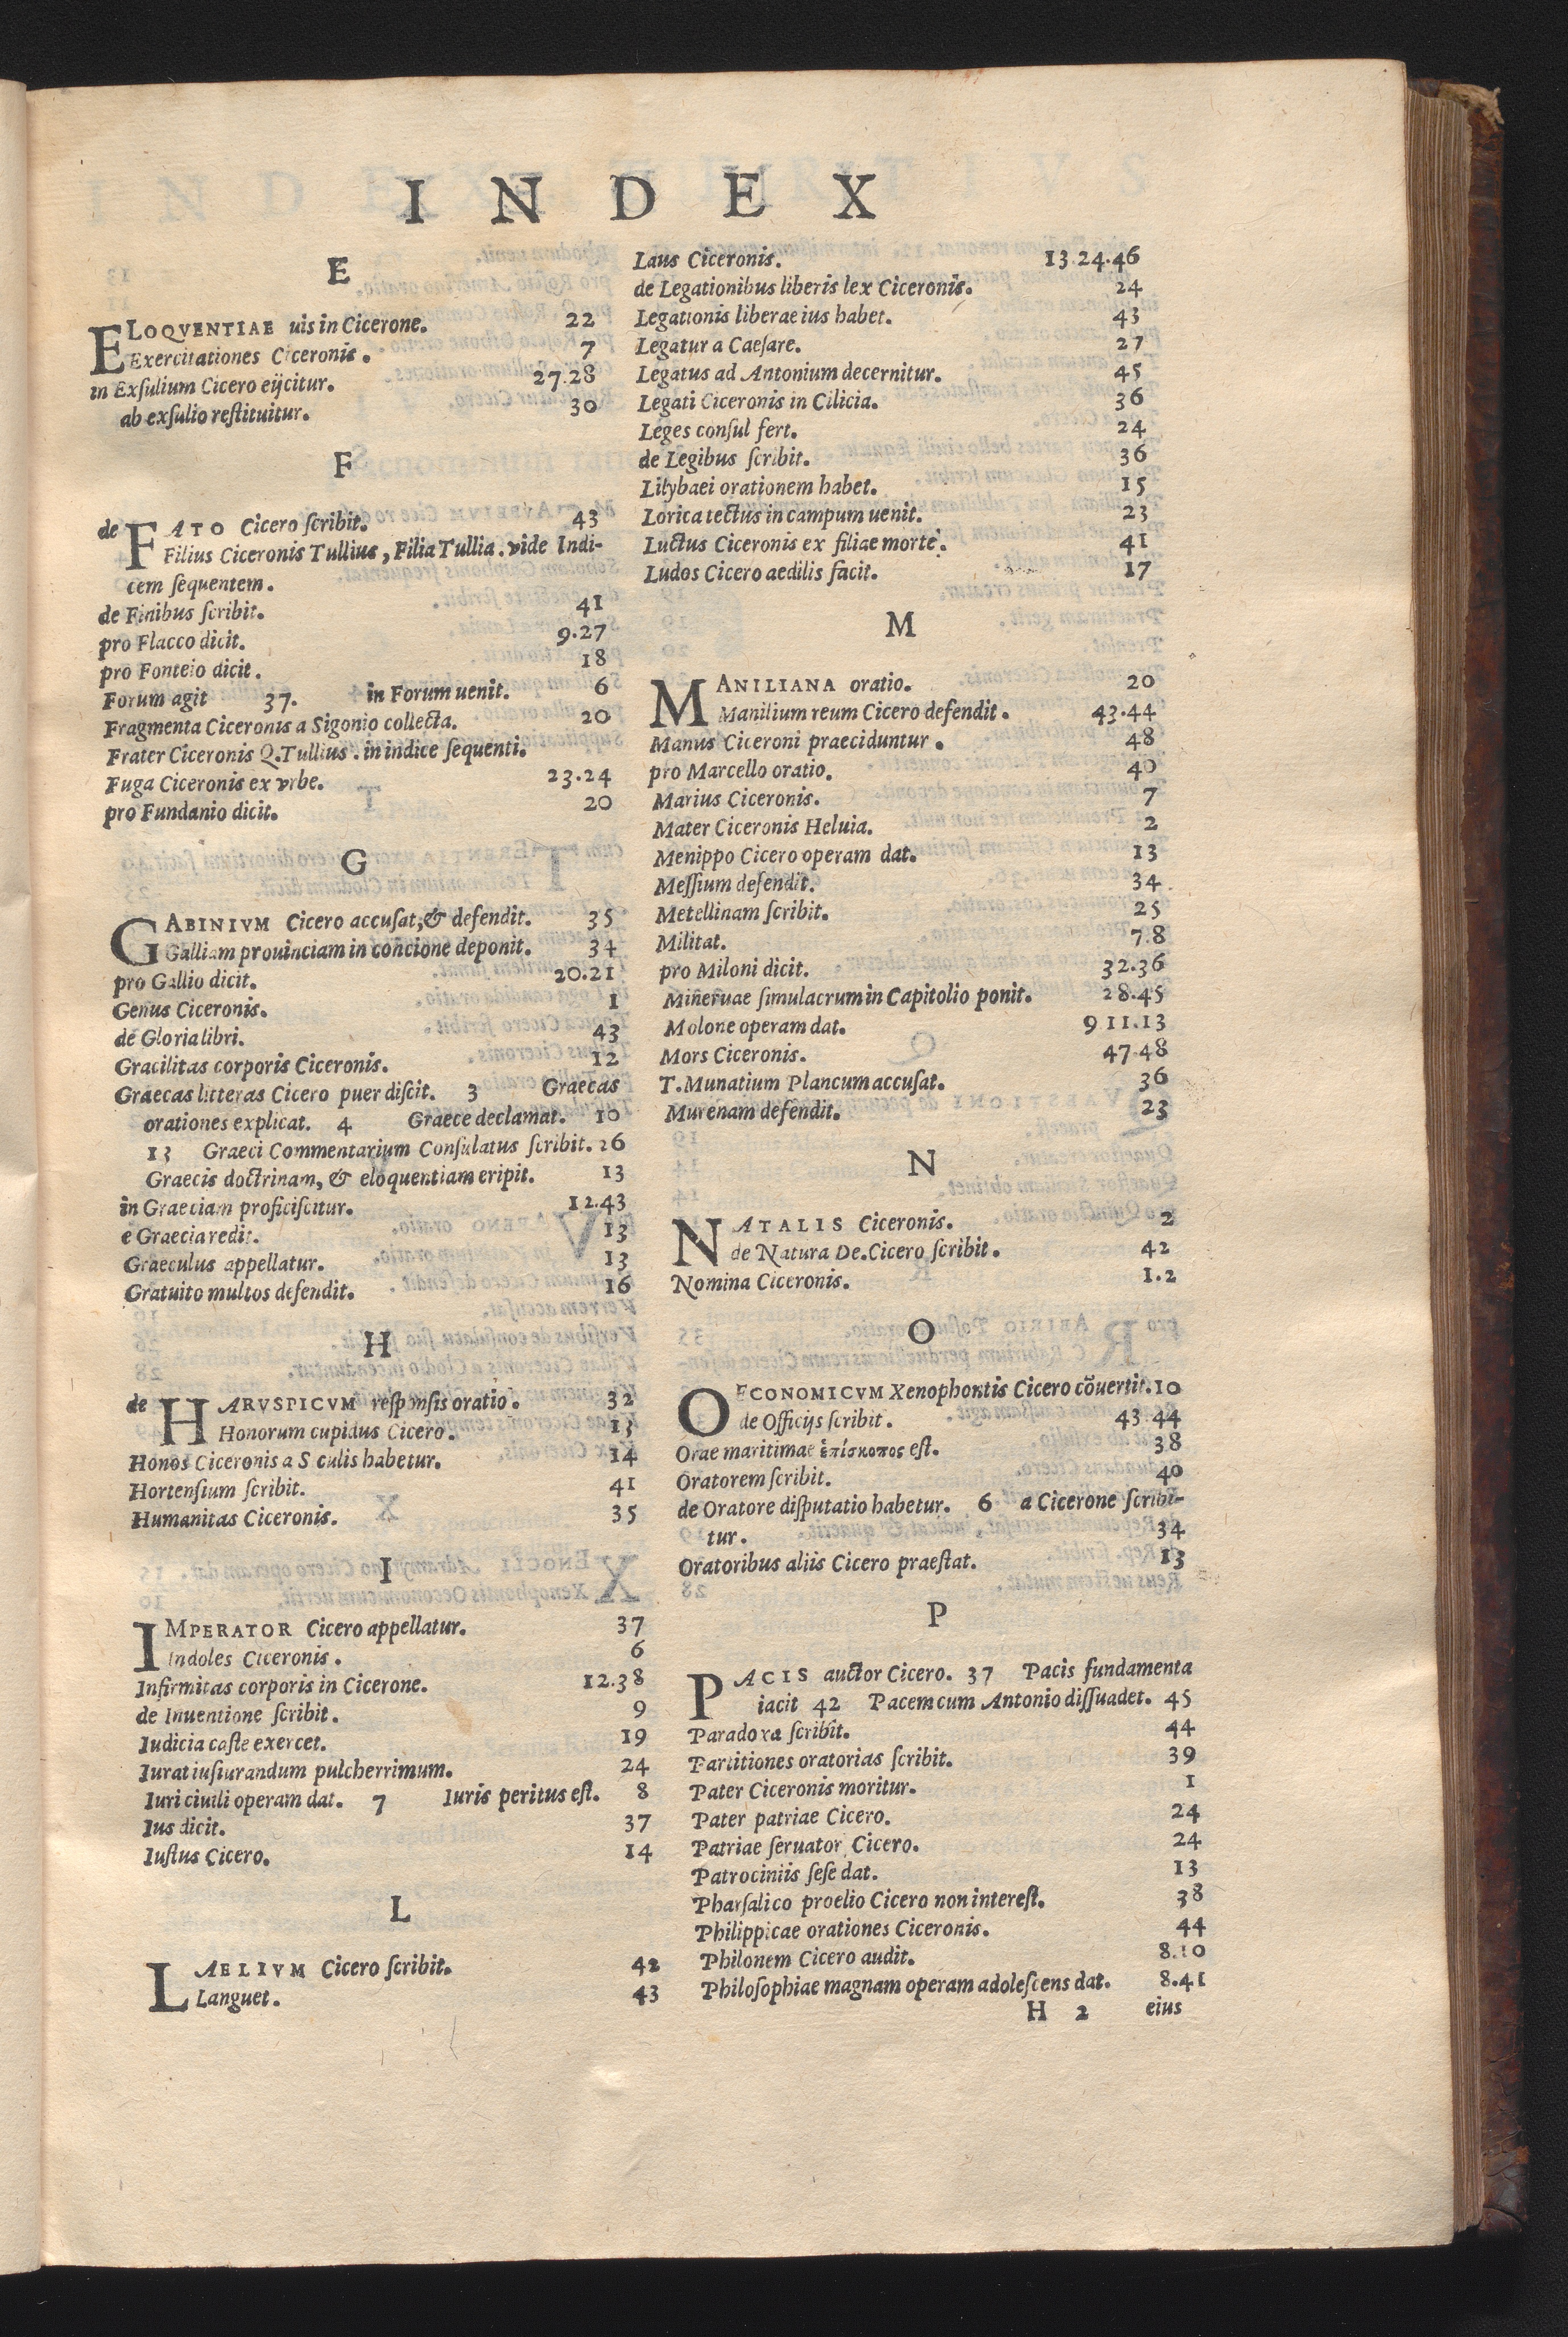 INDEX
E
ELOQVENTIAE uis in Cicerone. 22
Exercitationes Ciceronis. 7
in Exſulium Cicero eijcitur. 27.28
ab exſulio reſtituitur. 30
F
de FATO Cicero ſcribit. 43
Filius Ciceronis Tullius, Filia Tullia. vide Indi-
cem ſequentem.
de Finibus ſcribit. 41
pro Flacco dicit. 9.27
pro Fonteio dicit. 18
Forum agit 37. in Forum uenit. 6
Fragmenta Ciceronis a Sigonio collecta. 20
Frater Ciceronis Q. Tullius. in indice ſequenti.
Fuga Ciceronis ex vrbe. 23.24
pro Fundanio dicit. 20
G
GABINIVM Cicero accuſat, & defendit. 35
Galliam prouinciam in concione deponit. 34
pro Gallio dicit. 20.21
Genus Ciceronis. 1
de Gloria libri. 43
Gracilitas corporis Ciceronis. 12
Graecas litteras Cicero puer diſcit. 3 Graecas
orationes explicat. 4 Graece declamat. 10
13 Graeci Commentarium Conſulatus ſcribit. 26
Graecis doctrinam, & eloquentiam eripit. 13
in Graeciam proficiſcitur. 12.43
e Graecia redit. 13
Graeculus appellatur. 13
Gratuito multos defendit. 16
H
de HARVSPICVM reſponſis oratio. 32
Honorum cupidus Cicero. 13
Honos Ciceronis a S culis habetur. 14
Hortenſium ſcribit. 41
Humanitas Ciceronis. 35
I
IMPERATOR Cicero appellatur. 37
Indoles Ciceronis. 6
Infirmitas corporis in Cicerone. 12.38
de Inuentione ſcribit. 9
Iudicia caſte exercet. 19
Iurat iuſiurandum pulcherrimum. 24
Iuri ciuili operam dat. 7 Iuris peritus eſt. 8
Ius dicit. 37
Iuſtus Cicero. 14
L
LAELIVM Cicero ſcribit. 42
Languet. 43
Laus Ciceronis. 13.24.46
de Legationibus liberis lex Ciceronis. 24
Legationis liberae ius habet. 43
Legatur a Caeſare. 27
Legatus ad Antonium decernitur. 45
Legati Ciceronis in Cilicia. 36
Leges conſul fert. 24
de Legibus ſcribit. 36
Lilybaei orationem habet. 15
Lorica tectus in campum uenit. 23
Luctus Ciceronis ex filiae morte. 41
Ludos Cicero aedilis facit. 17
M
MANILIANA oratio. 20
Manilium reum Cicero defendit. 43.44
Manus Ciceroni praeciduntur. 48
pro Marcello oratio. 40
Marius Ciceronis. 7
Mater Ciceronis Heluia. 2
Menippo Cicero operam dat. 13
Meſſium defendit. 34
Metellinam ſcribit. 25
Militat. 7.8
pro Miloni dicit. 32.36
Mineruae ſimulacrum in Capitolio ponit. 28.45
Molone operam dat. 9 11.13
Mors Ciceronis. 47.48
T. Munatium Plancum accuſat. 36
Murenam defendit. 23
N
NATALIS Ciceronis. 2
de Natura De. Cicero ſcribit. 42
Nomina Ciceronis. 1.2
O
OECONOMICVM Xenophontis Cicero cōuertit. 10
de Officijs ſcribit. 43.44
Orae maritimae ἐπίσκοπος eſt. 38
Oratorem ſcribit. 40
de Oratore diſputatio habetur. 6 a Cicerone ſcribi-
tur. 34
Oratoribus aliis Cicero praeſtat. 13
P
PACIS auctor Cicero. 37 Pacis fundamenta
iacit 42 Pacem cum Antonio diſſuadet. 45
Paradoxa ſcribit. 44
Partitiones oratorias ſcribit. 39
Pater Ciceronis moritur. 1
Pater patriae Cicero. 24
Patriae ſeruator Cicero. 24
Patrociniis ſeſe dat. 13
Pharſalico proelio Cicero non intereſt. 38
Philippicae orationes Ciceronis. 44
Philonem Cicero audit. 8.10
Philoſophiae magnam operam adoleſcens dat. 8.41
H 2 eius